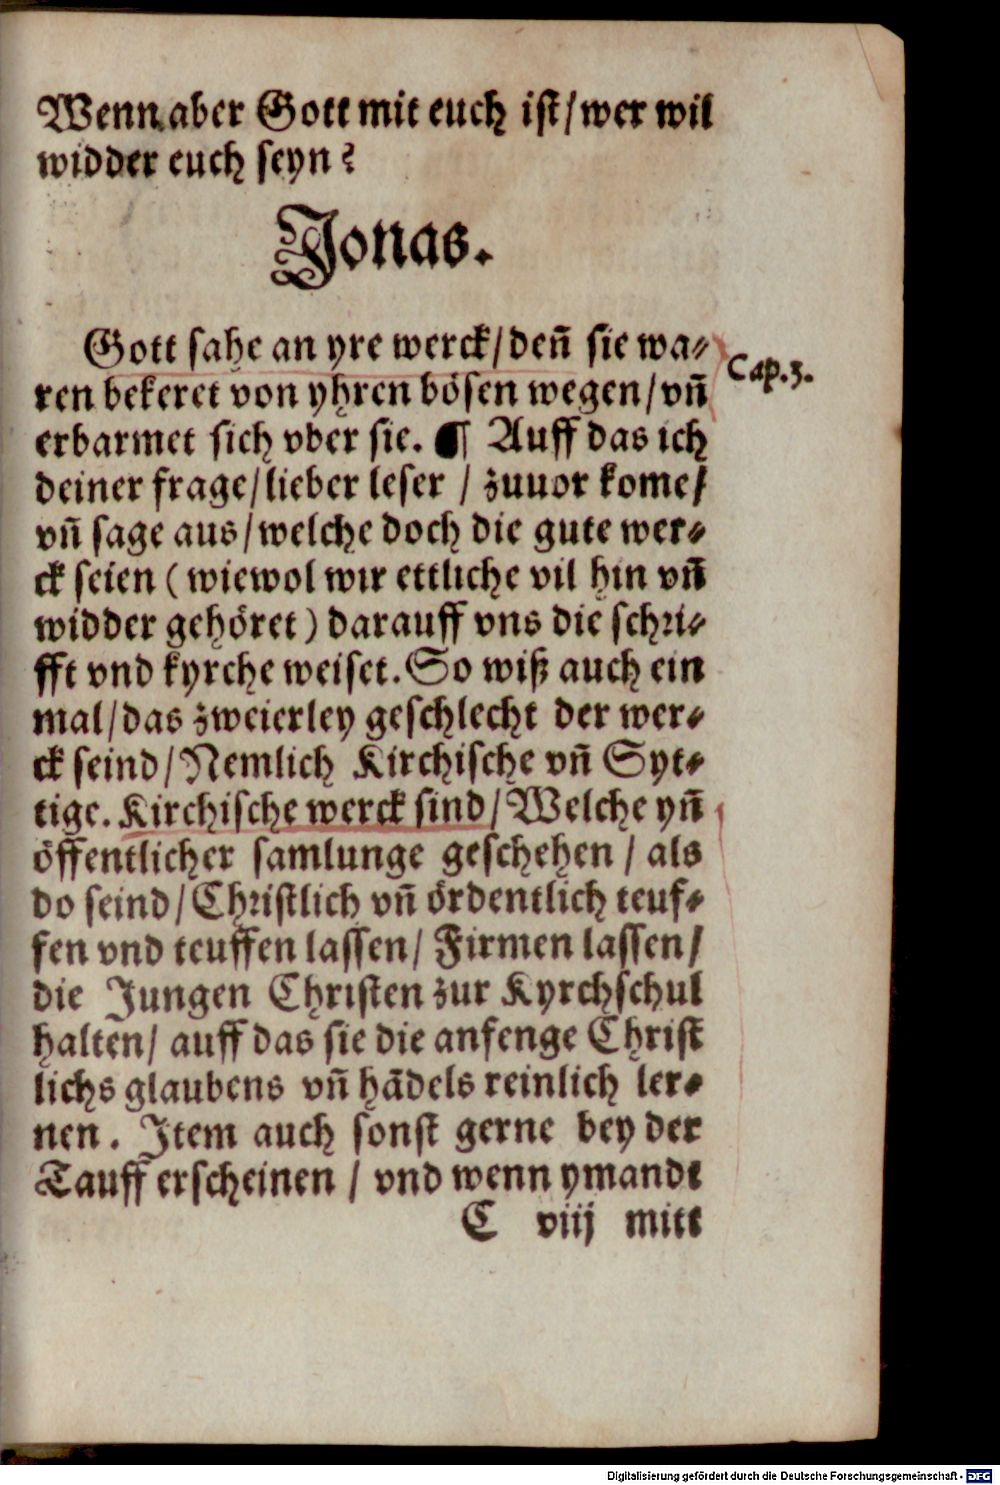 Wenn aber Gott mit euch ist/wer wil
widder euch seyn?
Jonas.
Gott sahe an yre werck/deñ sie wa⸗
Cap.3.
ren bekeret von yhren bösen wegen/vñ
erbarmet sich vber sie. ¶ Auff das ich
deiner frage/lieber leser / zuuor kome/
vñ sage aus/welche doch die gute wer⸗
ck seien (wiewol wir ettliche vil hin vñ
widder gehöret) darauff vns die schri⸗
fft vnd kyrche weiset. So wiß auch ein
mal/das zweierley geschlecht der wer⸗
ck seind/Nemlich Kirchische vñ Syt⸗
tige. Kirchische werck sind/Welche yñ
öffentlicher samlunge geschehen / als
do seind/Christlich vñ ördentlich teuf⸗
fen vnd teuffen lassen/ Firmen lassen/
die Jungen Christen zur Kyrchschul
halten/ auff das sie die anfenge Christ
lichs glaubens vñ hãdels reinlich ler⸗
nen. Item auch sonst gerne bey der
Tauff erscheinen / vnd wenn ymandt
C viij mitt
Digitalisierung gefördert durch die Deutsche Forschungsgemeinschaft - DFG